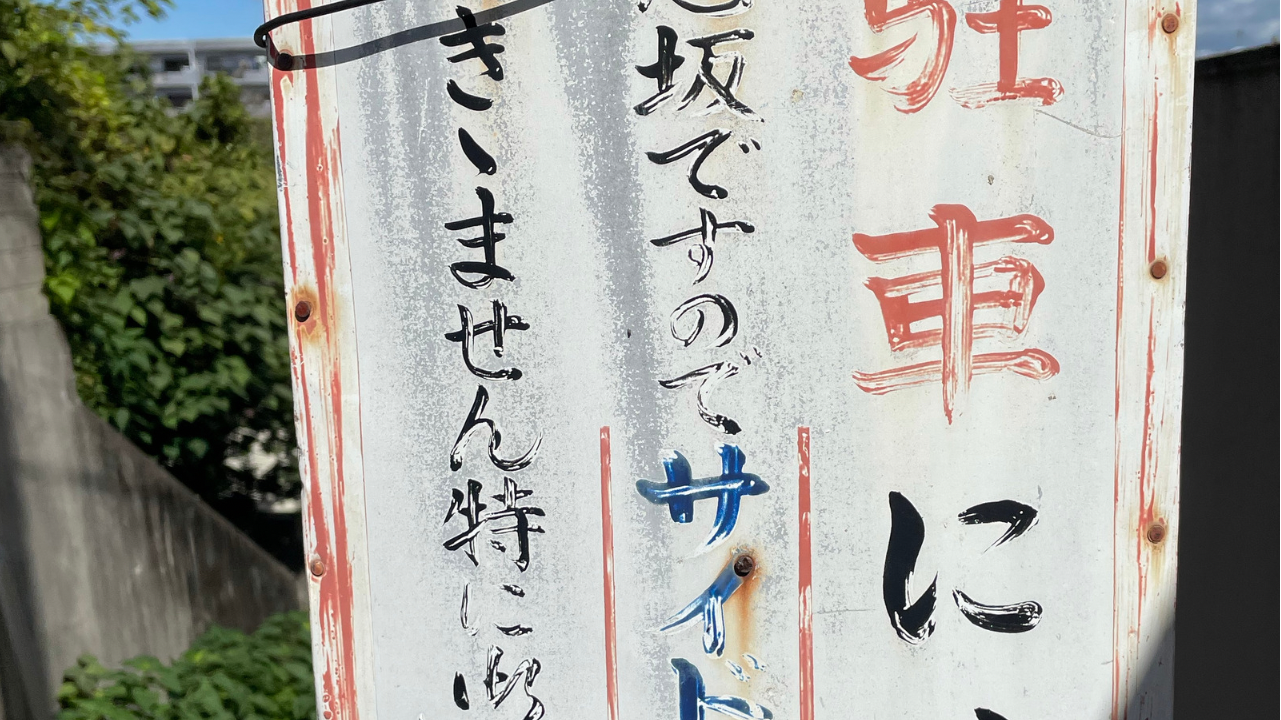 駐車に
急坂ですのでサイド
きゝません特に